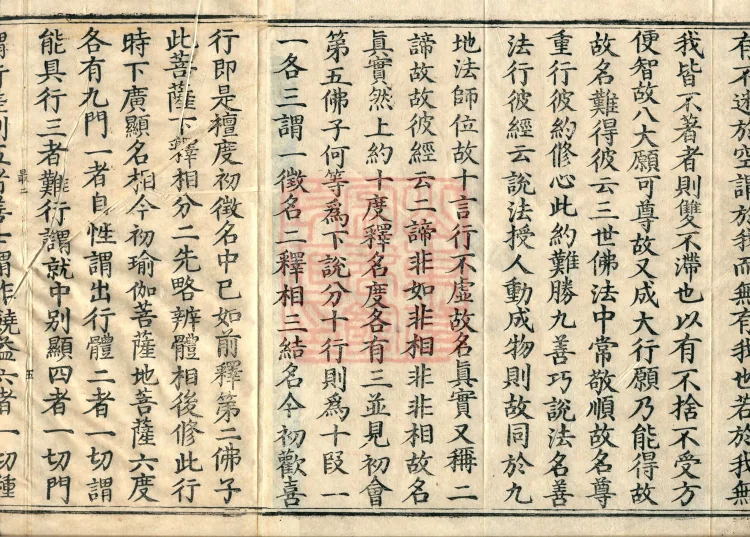 有不迷於空謂於我而無有我也若於我無
我皆不著者則雙不滯也以有不捨不受方
便智故八大願可尊故又成大行願乃能得故
故名難得彼云三世佛法中常敬順故名尊
重行彼約修心此約難勝九善巧說法名善
法行彼經云說法授人動成物則故同於九
地法師位故十言行不虛故名眞實又稱二
諦故故彼經云二諦非如非相非非相故名
眞實然上約十度釋名度各有三並見初會
第五佛子何等爲下說分十行則爲十段一
一各三謂一徵名二釋相三結名今初歡喜
行即是檀度初徵名中已如前釋第二佛子
此菩薩下釋相分二先略辨體相後修此行
時下廣顯名相今初瑜伽菩薩地菩薩六度
各有九門一者自性謂出行體二者一切謂
能具行三者難行謂就中別顯四者一切門
最二
五
謂行差別五者善士謂作饒益六者一切種